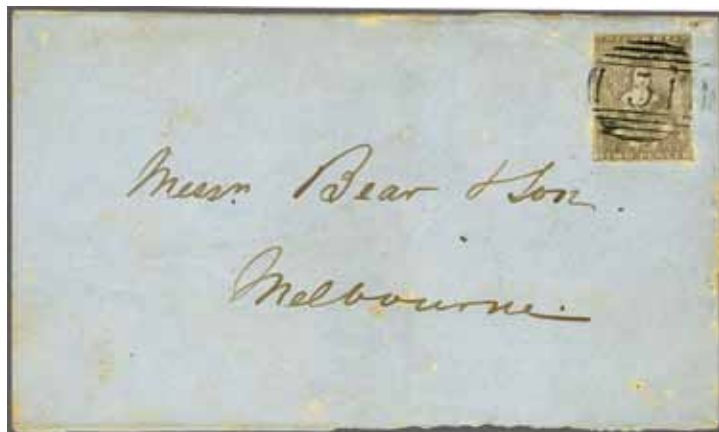 5
Messrs. Bear & Son.
Melbourne.